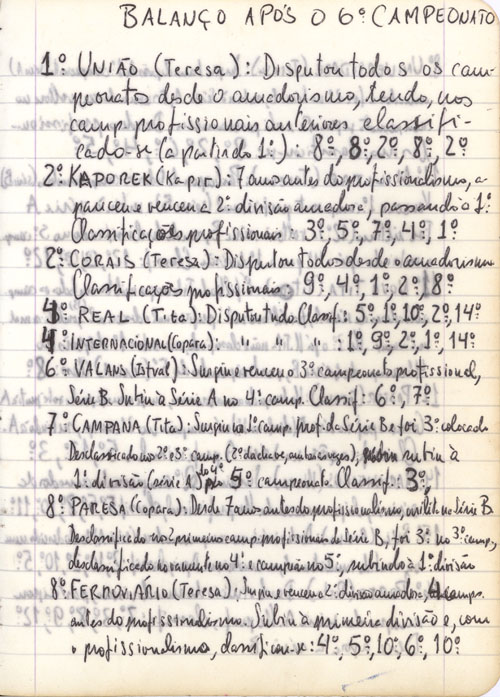 BALANÇO APÓS O 6º CAMPEONATO
1º UNIÃO (Teresa): Disputou todos os cam-
peonatos desde o amadorismo, tendo, nos
camp. profissionais anteriores classifi-
cado-se (a partir do 1º): 8º, 8º, 2º, 8º, 2º
2º KAPOREK (Kapir): 7 anos antes do profissionalismo, a-
pareceu e venceu a 2ª divisão amadora, passando à 1ª
Classificações profissionais: 3º, 5º, 7º, 4º, 1º
2º CORAIS (Teresa): Disputou todos desde o amadorismo
Classificações profissionais: 9º, 4º, 1º, 2º, 8º
4º REAL (Tita): Disputou tudo. Classif.: 5º, 1º, 10º, 2º, 14º
4º INTERNACIONAL (Copara): " " " : 1º, 9º, 2º, 1º, 14º
6º VALANS (Istval): Surgiu e venceu o 3º campeonato profissional,
Série B. Subiu à Série A no 4º camp. Classif: 6º, 7º
7º CAMPANA (Tita): Surgiu no 1º camp. prof. da Série B e foi 3º colocado
Desclassificado no 2º e 3º camp. (2º da chave, ambas as vezes), subiu à
1ª divisão (série A) do 4º 5º campeonato. Classif.: 3º,
8º PARESA (Copara): Desde 7 anos antes do profissionalismo, na Série B
Desclassificado no 2 primeiro camp. profissionais de Série B, foi 3º no 3º camp.,
desclassificado novamente no 4º e campeão no 5º, subindo à 1ª divisão
8º FERROVIÁRIO (Teresa): Surgiu e venceu a 2ª divisão amadora, 4 camps.
antes do profissionalismo. Subiu à primeira divisão e, com
o profissionalismo, classificou-se: 4º, 5º, 10º, 6º, 10º